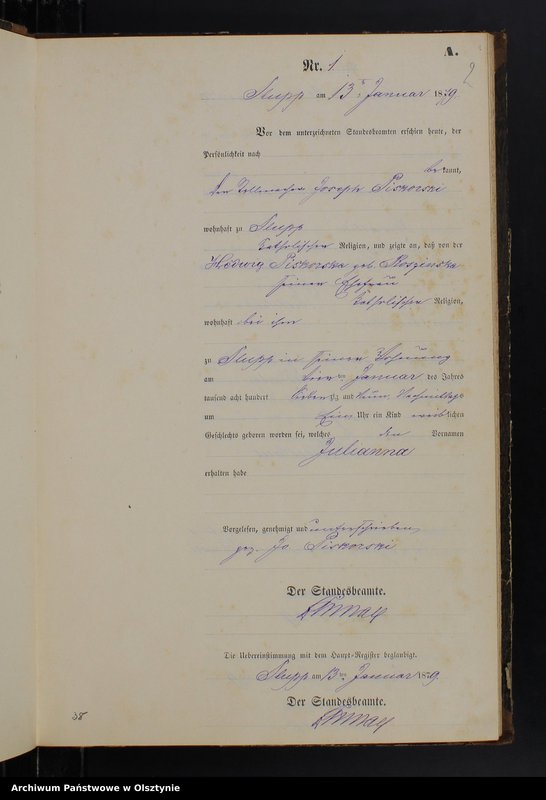 A.
2
Nr. 1
Slupp am 13ten Januar 1879.
Vor dem unterzeichneten Standesbeamten erschien heute, der
Persönlichkeit nach
be kannt,
der Joseph Piskorski
wohnhaft zu Slupp
katholischer Religion, und zeigte an, daß von der
Hedwig Piskorska geb.
seiner Ehefrau
katholischer Religion,
wohnhaft bei ihm
zu Slupp in seiner Wohnung
am ten Januar des Jahres
tausend acht hundert sieben zig und neun Nachmittags
um Ein Uhr ein Kind weib lichen
Geschlechts geboren worden sei, welches den Vornamen
Julianna
erhalten habe
Vorgelesen, genehmigt und unterschrieben
gez. Jo. Piskorski
Der Standesbeamte.
Die Uebereinstimmung mit dem Haupt-Register beglaubigt.
Slupp am 13ten Januar 1879.
Der Standesbeamte.
38
Archiwum Państwowe w Olsztynie